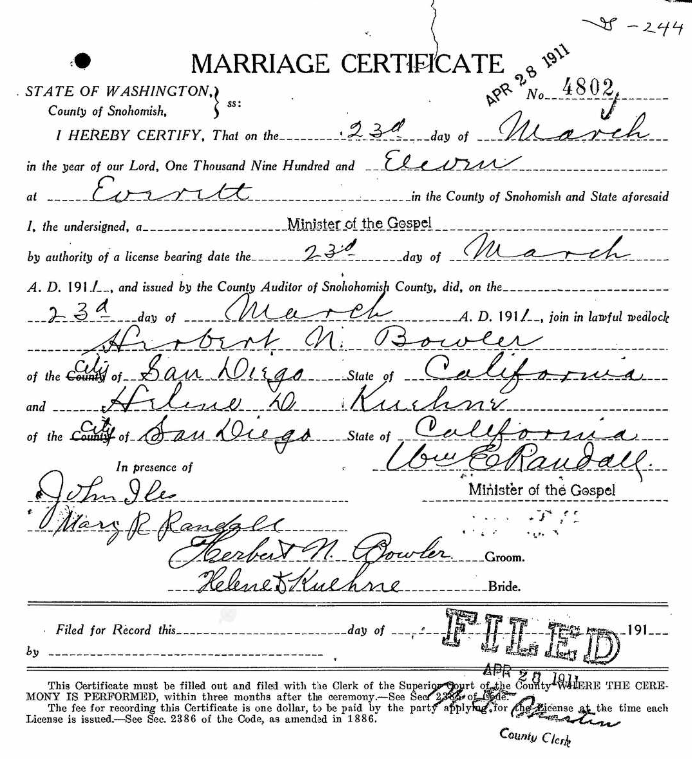 -244
MARRIAGE CERTIFICATE
APR 28 1911
STATE OF WASHINGTON, } ss:
No. 4802
County of Snohomish,
I HEREBY CERTIFY, That on the 23d day of March
in the year of our Lord, One Thousand Nine Hundred and Eleven
at Everett in the County of Snohomish and State aforesaid
I, the undersigned, a Minister of the Gospel
by authority of a license bearing date the 23d day of March
A. D. 1911, and issued by the County Auditor of Snohohomish County, did, on the
23d day of March A. D. 1911, join in lawful wedlock
Herbert N. Bowler
of the City County of San Diego State of California
and Helene D Kuehne
of the City County of San Diego State of California
In presence of
Wm E Randall.
John Iles
Minister of the Gospel
Mary R Randall
Herbert N. Bowler Groom.
Helene D Kuehne Bride.
Filed for Record this day of 191
FILED
by
APR 28 1911
This Certificate must be filled out and filed with the Clerk of the Superior Court of the County WHERE THE CERE-
MONY IS PERFORMED, within three months after the ceremony.—See Sec. of Code.
The fee for recording this Certificate is one dollar, to be paid by the party applying for the License at the time each
License is issued.—See Sec. 2386 of the Code, as amended in 1886.
Martin
County Clerk